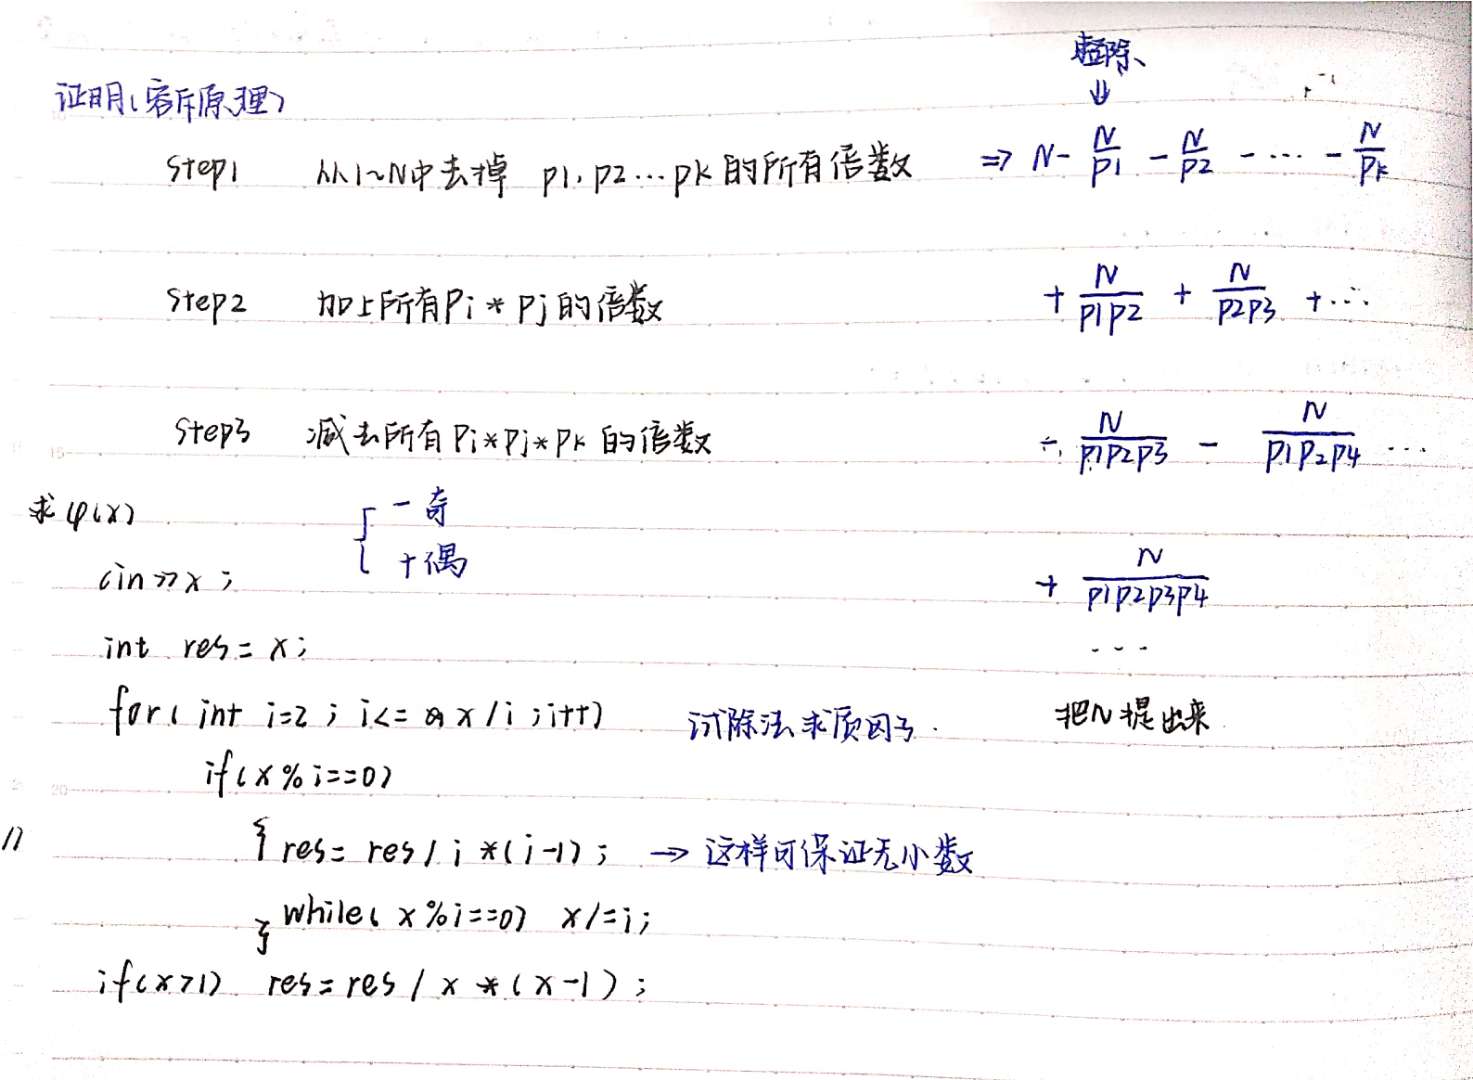 整除
⇓
证明(容斥原理)
Step1 从1~N中去掉 p1,p2…pk的所有倍数 => N - N/p1 - N/p2 - … - N/pk
Step2 加上所有Pi * Pj的倍数 + N/p1p2 + N/p2p3 + …
Step3 减去所有Pi*Pj*Pk的倍数 - N/p1p2p3 - N/p1p2p4 …
求φ(x) { - 奇
+ 偶
cin>>x; + N/p1p2p3p4
int res = x; …
for( int i=2 ; i<= x/i ; i++) 试除法求质因子. 把N提出来
if(x%i==0)
{ res = res / i *(i-1); → 这样可保证无小数
while( x%i==0) x/=i;
}
if(x>1) res = res / x *(x-1);